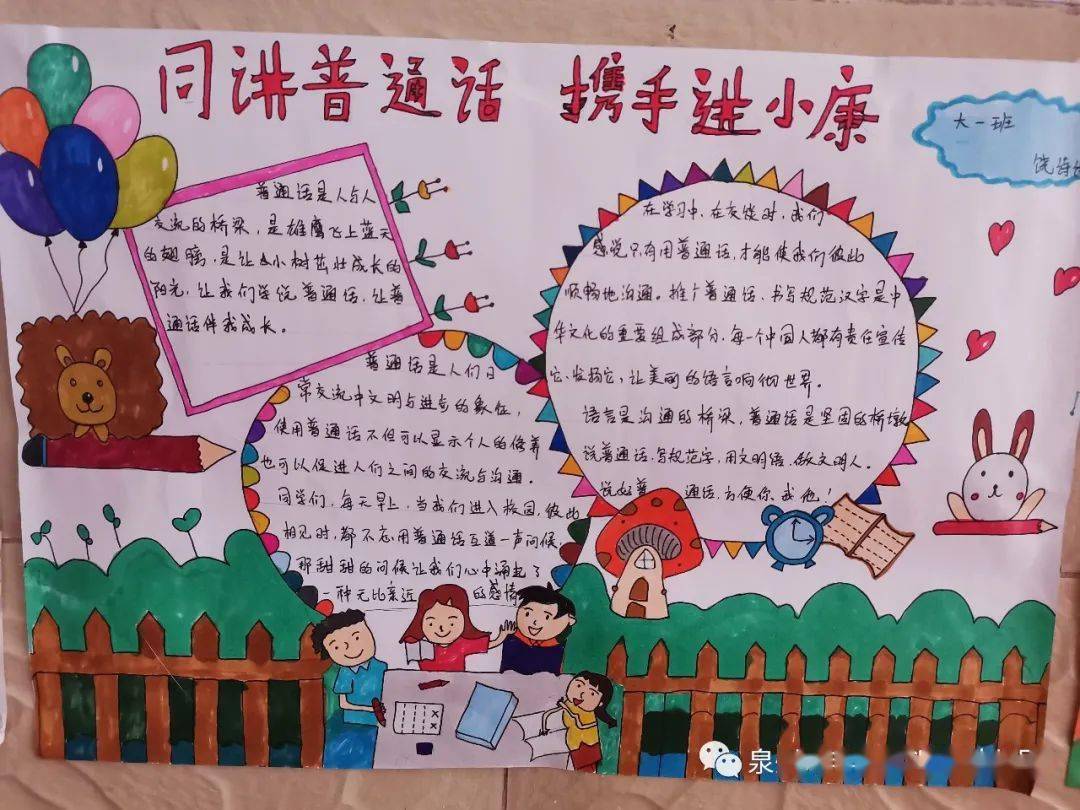 同讲普通话 携手进小康
大一班
饶诗
普通话是人与人
交流的桥梁，是雄鹰飞上蓝天
的翅膀，是让小树茁壮成长的
阳光，让我们学说普通话，让普
通话伴我成长。
普通话是人们日
常交流中文明与进步的象征，
使用普通话不但可以显示个人的修养
也可以促进人们之间的交流与沟通。
同学们，每天早上，当我们进入校园，彼此
相见时，都不忘用普通话互道一声问候，
那甜甜的问候让我们心中涌起了
一种无比亲近的感情
在学习中，在交谈时，我们
感觉只有用普通话，才能使我们彼此
顺畅地沟通。推广普通话、书写规范汉字是中
华文化的重要组成部分，每一个中国人都有责任宣传
它、发扬它，让美丽的语言响彻世界。
语言是沟通的桥梁，普通话是坚固的桥墩
说普通话，写规范字，用文明语，做文明人。
说好普通话，方便你、我、他！
泉